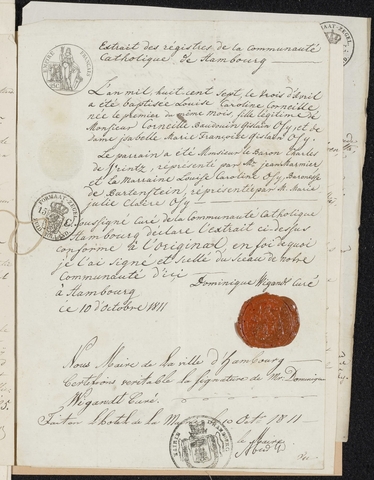 Extrait des régistres de la communauté
Catholique de Hambourg
L'an mil huit cent sept, le trois d'Avril
a été baptisée Louise Caroline Corneille
née le premier du même mois, fille légitime de
Monsieur Corneille Baudouin Gislain Osy et de
dame Isabelle Marie Françoise Gislain Osy.
Le parrain a été Monsieur le Baron Charles
de représenté par Mr.
et la Marraine Louise Caroline Osy Baronesse
de Bartenstein, représentée par M. Marie
Julie Claire Osy
soussigné Curé de la Communauté Catholique
Hambourg déclare l'extrait ci-dessus
conforme à l'original, en foi de quoi
je l'ai signé et scellé du sceau de notre
Communauté d'ici
à Hambourg
ce 10 d'Octobre 1811
Dominique Wigandt Curé
Nous Maire de la ville d'Hambourg
Certifions veritable la Signature de Mr Dominique
Wigandt Curé.
Fait en l'hotel de la 10 Oct 1811